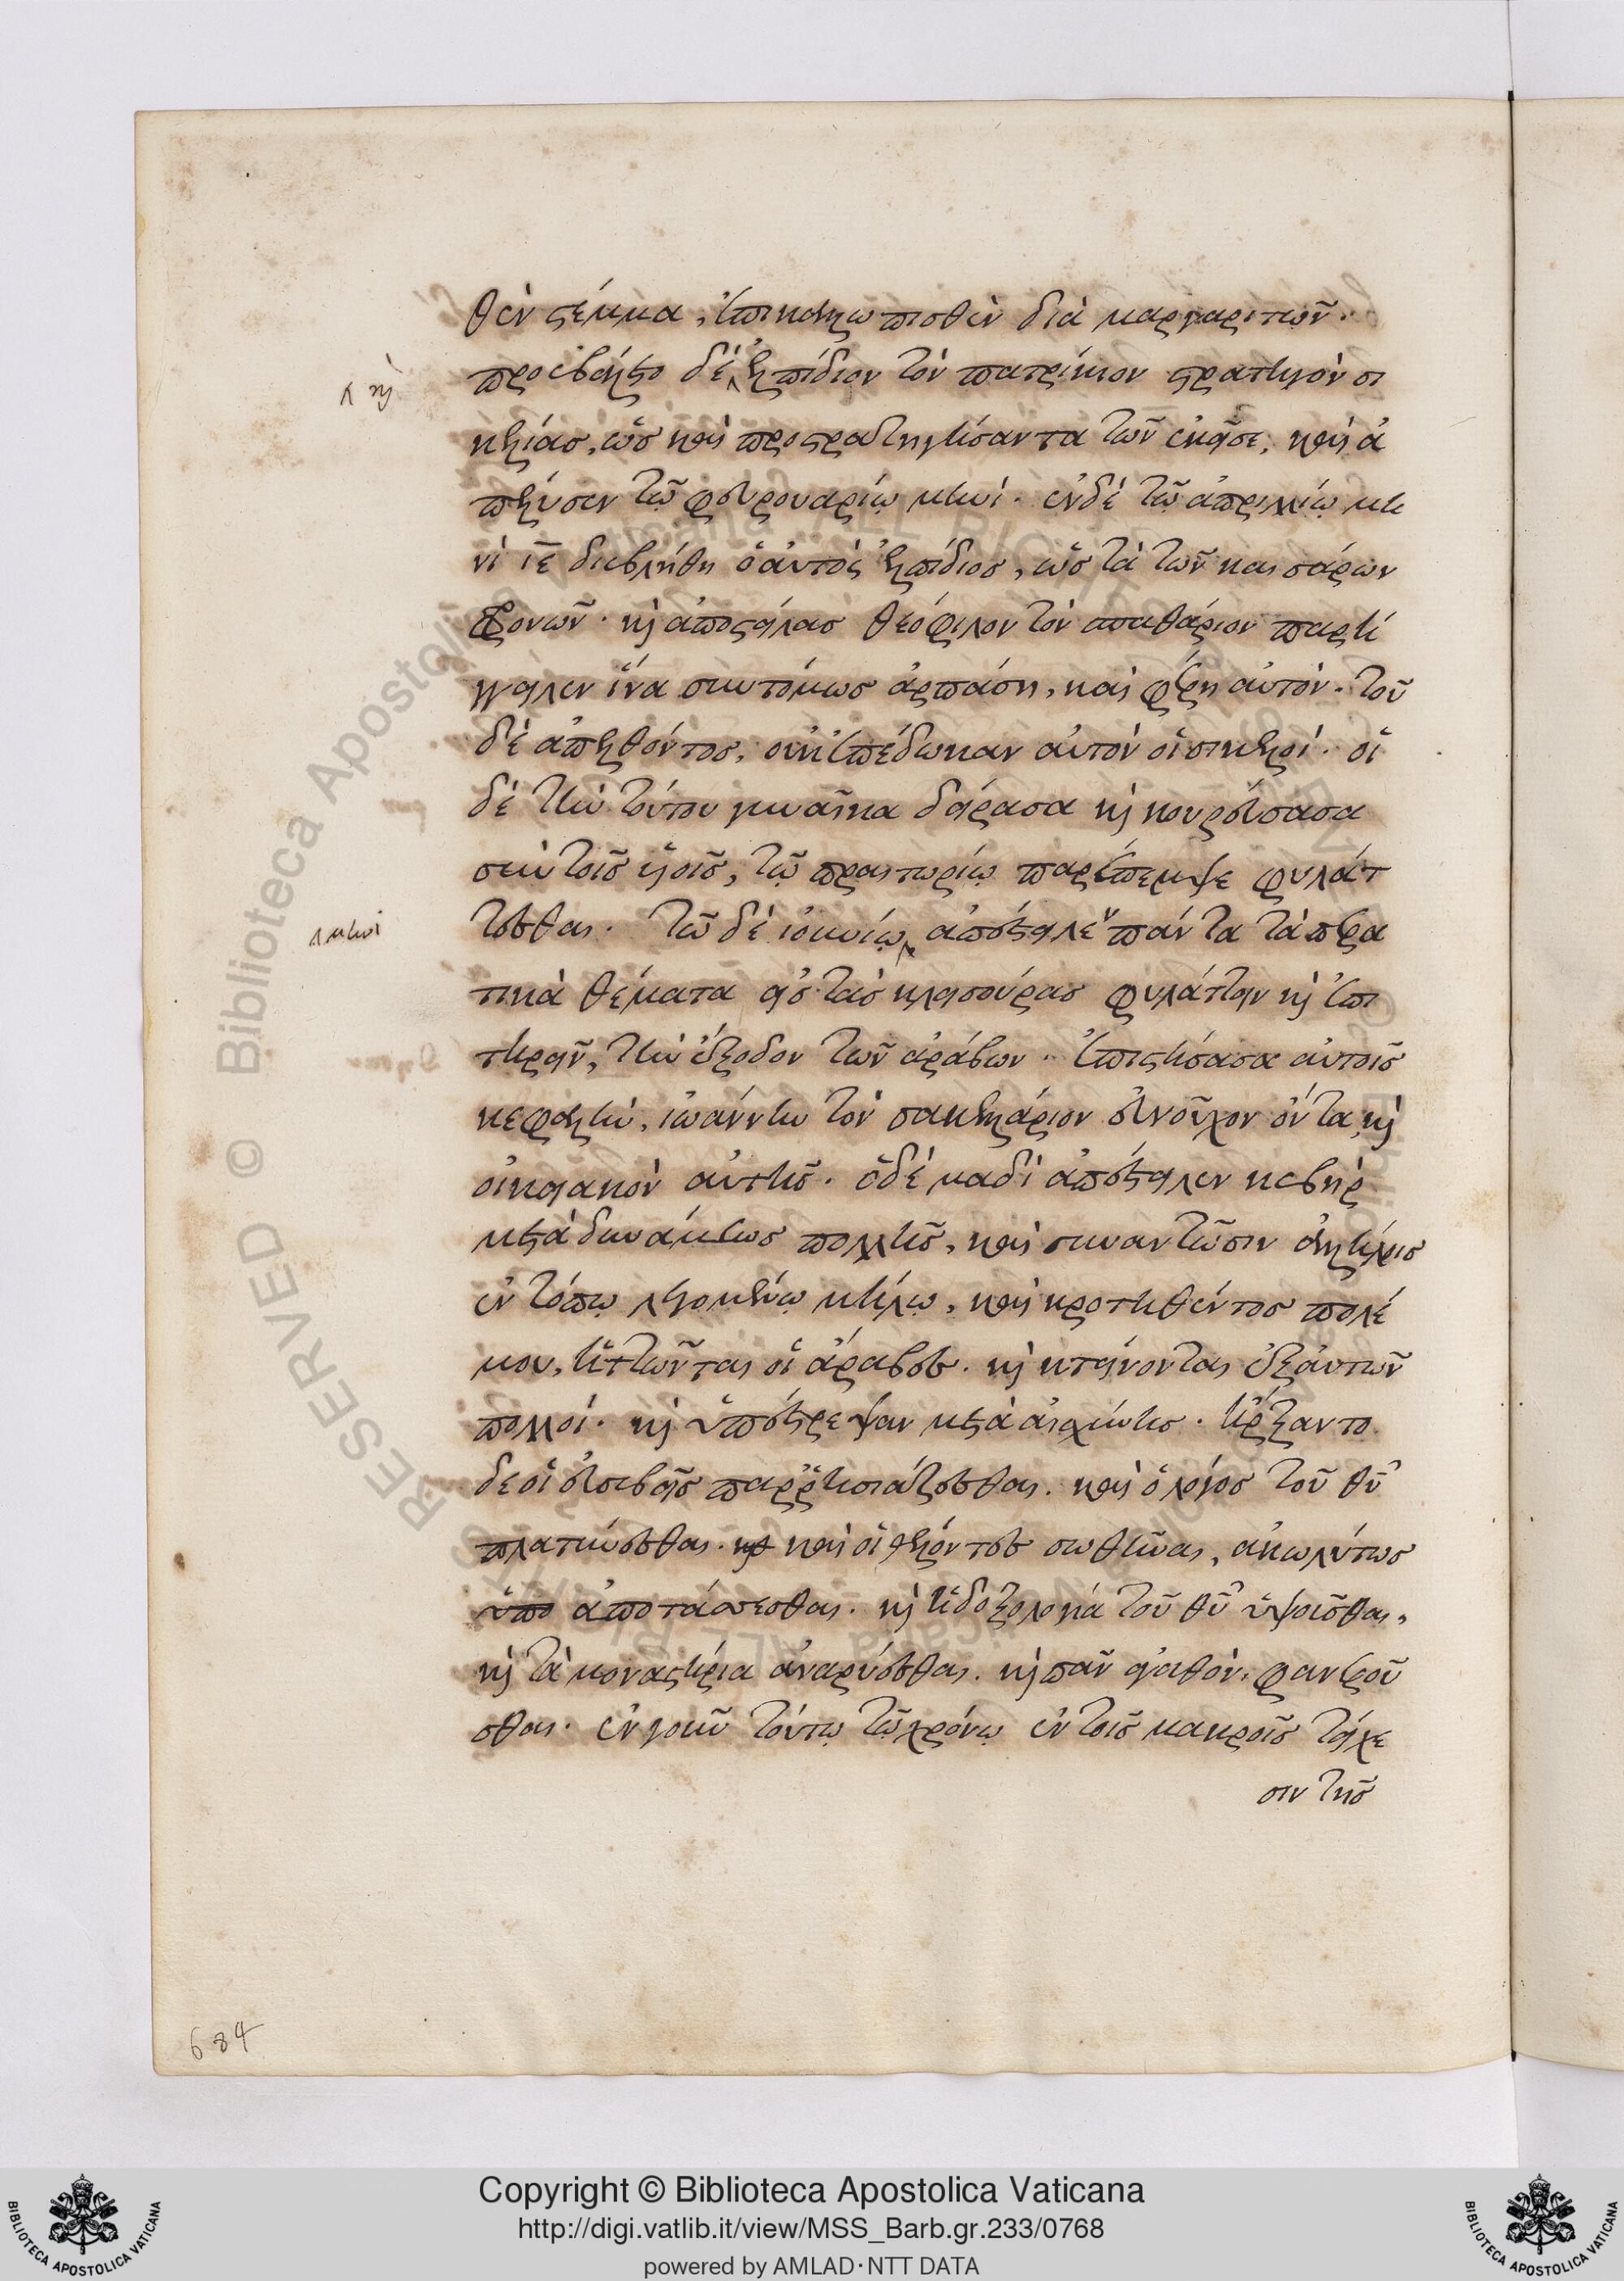 θὲν στέμμα, ἐπικαλλωπισθὲν διὰ μαργαριτῶν.
προεβάλετο δὲ ἐλπίδιον τὸν πατρίκιον στρατηγὸν σι
κελίας, ὡς καὶ προστρατηγήσαντα τῶν ἐκεῖσε, καὶ ἀ
πέλυσεν τῷ φευρουαρίῳ μηνί. ἐν δὲ τῷ ἀπριλλίῳ μη
νὶ ιε διεβλήθη ὁ αὐτὸς ἐλπίδιος, ὡς τὰ τῶν καισάρων
φρονῶν. καὶ ἀποστείλας θεόφιλον τὸν σπαθάριον παρή
γγειλεν ἵνα συντόμως ἁρπάση, καὶ φέρη αὐτόν. τοῦ
δὲ ἀπελθόντος, οὐκ ἐπέδωκαν αὐτὸν οἱ σικελοί. οἱ
δὲ τὴν τούτου γυναῖκα δείρασα καὶ κουρεύσασα
σὺν τοῖς υἱοῖς, τῷ πραιτωρίῳ παρέπεμψε φυλάτ
τεσθαι. τῷ δὲ ἰουνίῳ ἀπέστειλεν πάντα τὰ περα
τικὰ θέματα εἰς τὰς κλεισούρας φυλάττειν καὶ ἐπι
τηρεῖν, τὴν ἔξοδον τῶν ἀράβων. ἐπιστήσασα αὐτοῖς
κεφαλὴν, ἰωάννην τὸν σακελλάριον εὐνοῦχον ὄντα, καὶ
οἰκειακὸν αὐτῆς. ὁ δὲ μαδὶ ἀπέστειλεν κεβὴρ
μετὰ δυνάμεως πολλῆς, καὶ συναντῶσιν ἀλλήλοις
ἐν τόπῳ λεγομένῳ μήλῳ, καὶ κροτηθέντος πολέ
μου, ἡττῶνται οἱ ἄραβες. καὶ κτείνονται ἐξ αὐτῶν
πολλοί. καὶ ὑπέστρεψαν μετὰ αἰσχύνης. ἤρξαντο
δε οἱ εὐσεβεῖς παρρησιάζεσθαι. καὶ ὁ λόγος τοῦ θυ
πλατύνεσθαι. καὶ καὶ οἱ θέλοντες σωθῆναι, ἀκωλύτως
ὑπο ἀποτάσσεσθαι. καὶ ἡ δοξολογία τοῦ θυ ὑψοῦσθαι,
καὶ τὰ μοναστήρια ἀναρρύεσθαι. καὶ πᾶν ἀγαθὸν. φανεροῦ
σθαι. ἐν γοῦν τούτῳ τῷ χρόνῳ ἐν τοῖς μακροῖς τείχε
σιν τῆς
καὶ
μηνὶ
684
RESERVED © Biblioteca Apostolica Vaticana
Copyright © Biblioteca Apostolica Vaticana
http://digi.vatlib.it/view/MSS_Barb.gr.233/0768
powered by AMLAD·NTT DATA
BIBLIOTECA APOSTOLICA VATICANA
BIBLIOTECA APOSTOLICA VATICANA